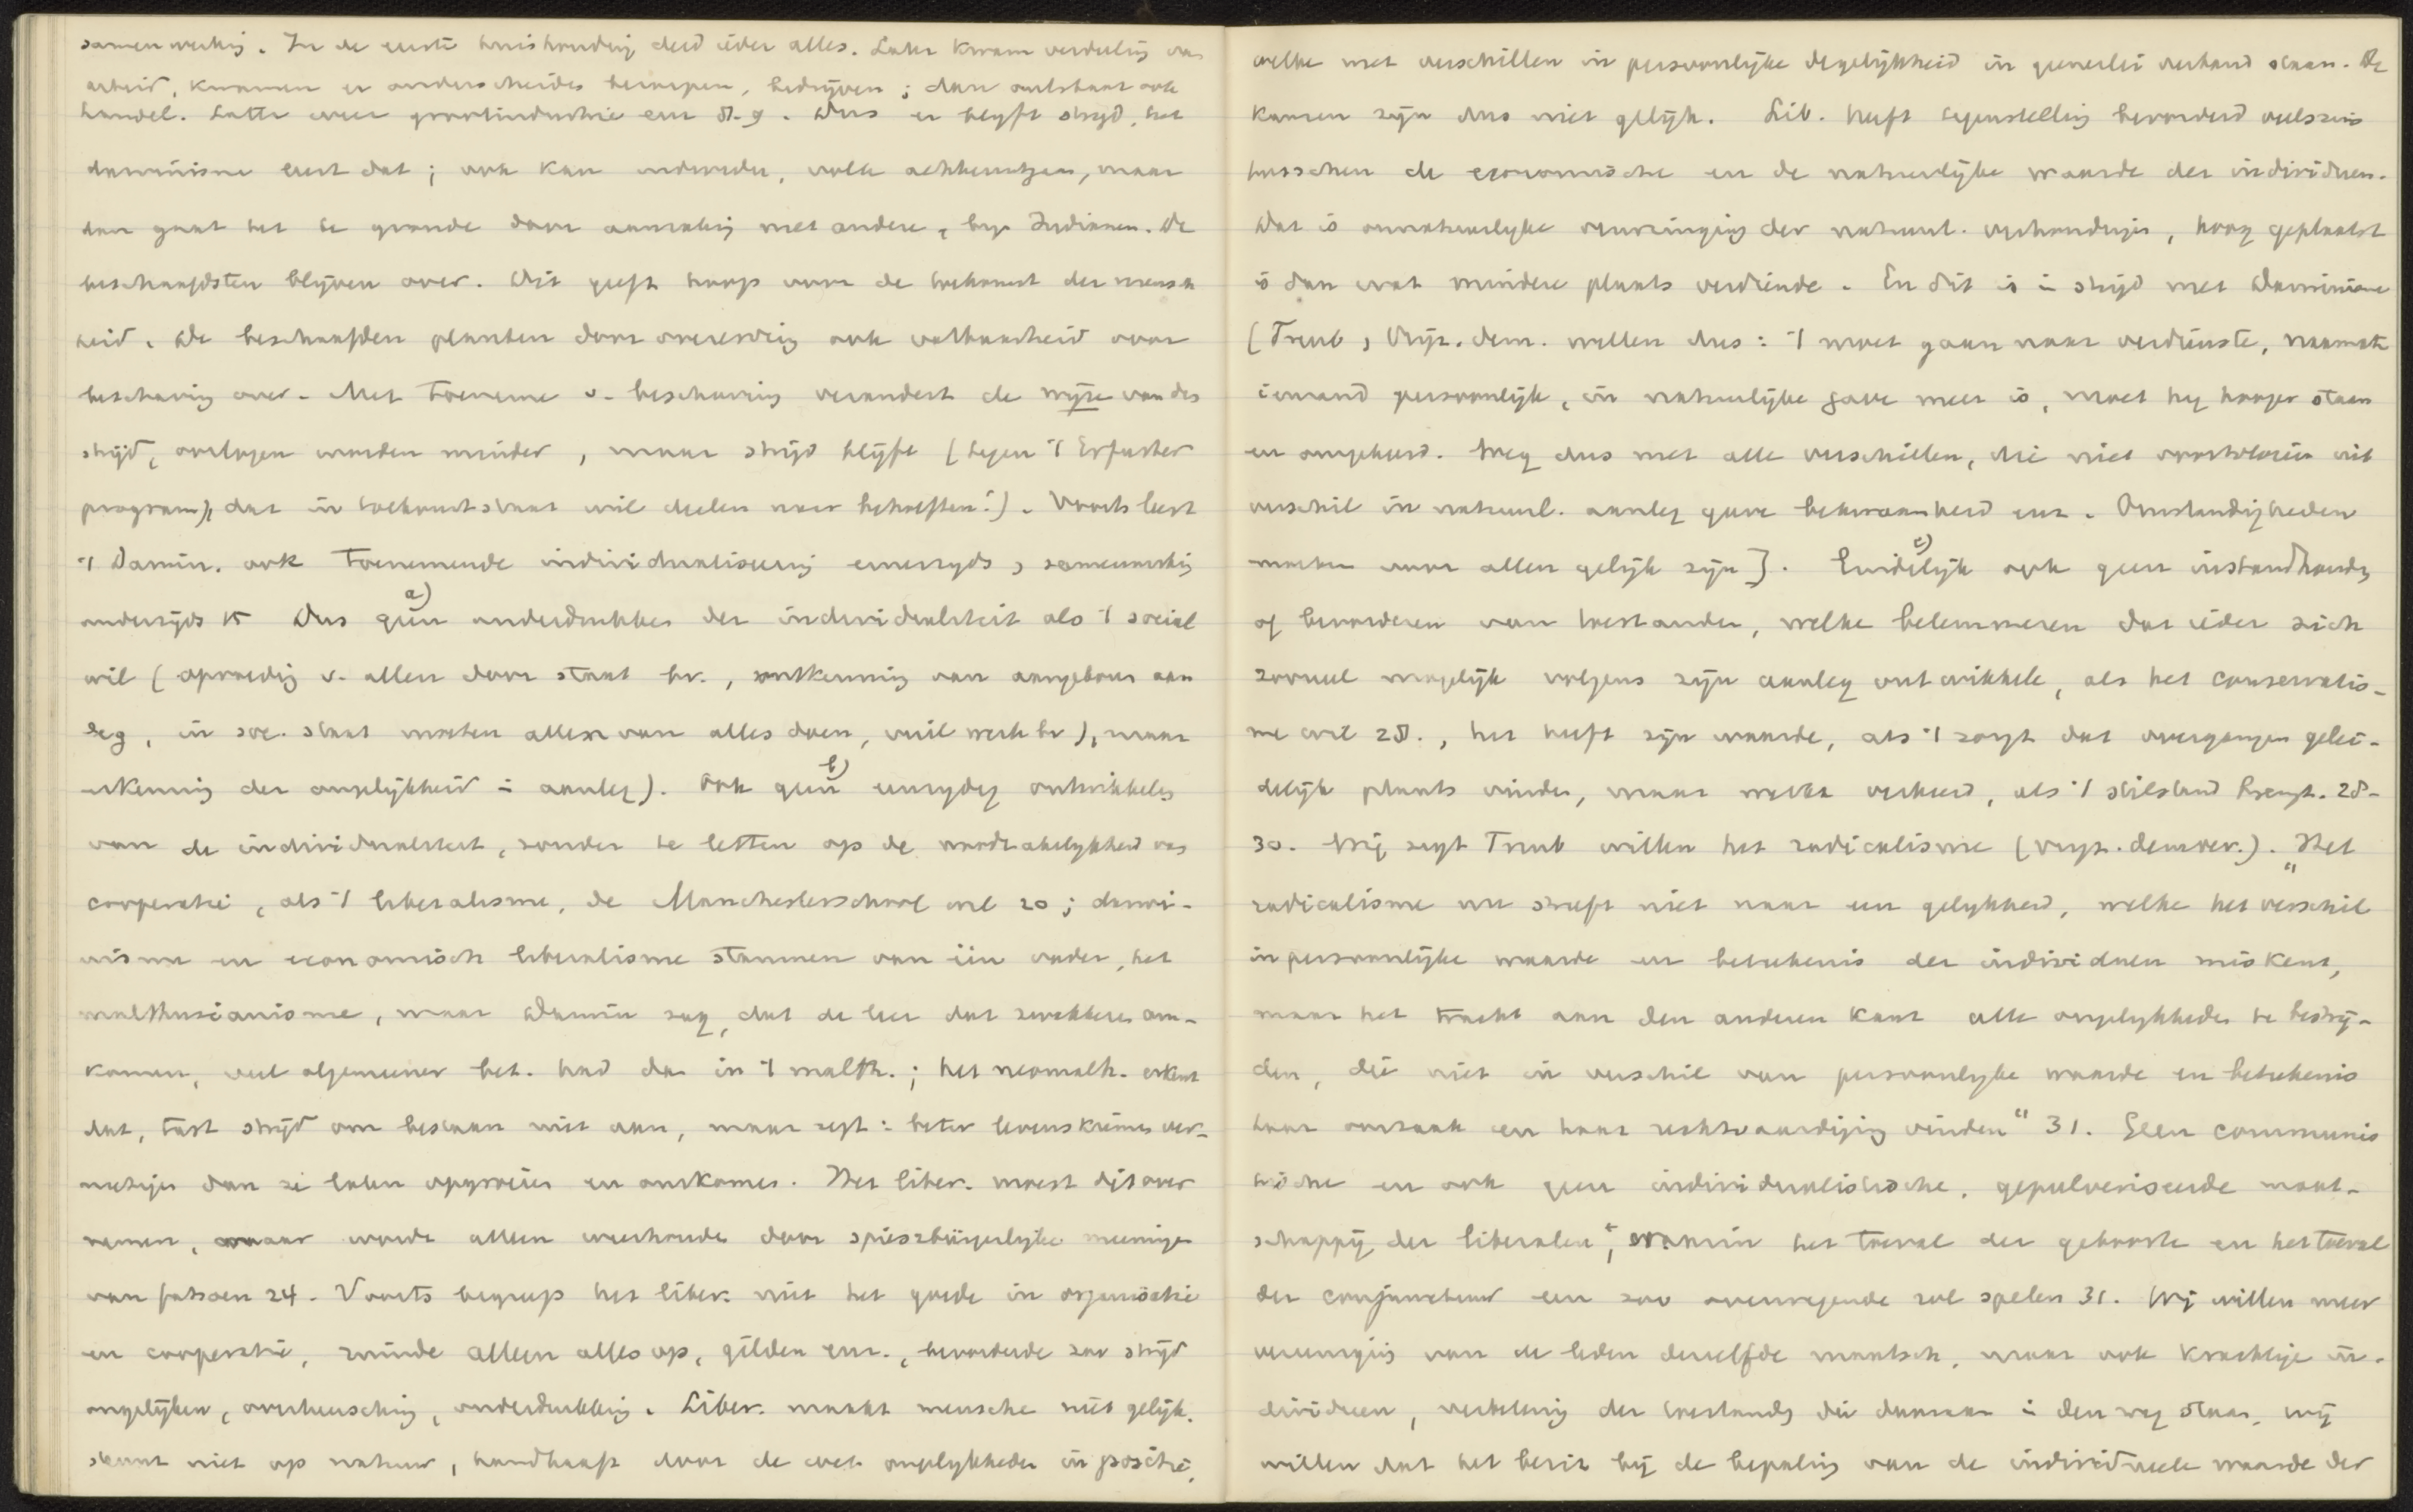 samenwerking. In de eerste huishouding deed ieder alles. Later kwam verdeeling van
arbeid, kwamen er onderscheiden beroepen, bedrijven; dan ontstaat ook
handel. Latter weer grootindustrie enz 8. 9. Dus er blijft strijd, het
darwinisme leert dat; ook kan iedereder, volk achteruitgaan, maar
dan gaat het te gronde door aanraking met andere, bijv Indianen. De
beschaafdsten blijven over. Dit geeft hoop voor de toekomst der mensch
heid. De beschaafden planten door overerving ook vatbaarheid voor
beschaving over. Met toename v. beschaving verandert de wijze van den
strijd, oorlogen worden minder, maar strijd blijft (tegen 't Erfurter
program), dat in toekomststaat wil deelen naar behoeften!). Voorts leert
't Darwin. ook toenemende individualiseering eenerzijds, samenwerking
anderzijds 15 Dus geen a) onderdrukken der individualiteit als 't social
wil (opvoeding v. allen door staat bv., ontkenning van aangeboren aan
leg, in soc. staat moeten allen van alles doen, vuil werk bv), maar
erkenning der ongelijkheid in aanleg). Ook geen b) eenzijdig ontwikkelen
van de individualiteit, zonder te letten op de noodzakelijkheid van
coöperatie, als 't liberalisme, de Manchesterschool wil 20; darwi-
nisme en economisch liberalisme stammen van één vader, het
malthusianisme, maar Darwin zag, dat de leer dat zwakkeren om-
komen, veel algemeener bet. had dan in 't malth.; het neomalth. erkent
dat, tast strijd om bestaan niet aan, maar zegt: beter levenskiemen ver-
nietigen dan ze laten opgroeien en omkomen. Het liber. moest dit over
nemen, maar wordt alleen weerhouden door spieszbürgerlijke meeningen
van fatsoen 24. Voorts begreep het liber. niet het goede in organisatie
en coöperatie, ruimde alleen alles op, gilden enz., bevorderde zoo strijd
ongelijken, overheersching, onderdrukking. Liber. maakt menschen niet gelijk,
steunt niet op natuur, handhaaft door de wet ongelijkheden in positie,
welke met verschillen in persoonlijke degelijkheid in generlei verband staan. De
kansen zijn dus niet gelijk. Lib. heeft tegenstelling bevorderd veelszins
tusschen de economische en de natuurlijke waarde der individuen.
Dat is onnatuurlijke omwringing der natuurl. verhoudingen, hoog geplaatst
is dan wat mindere plaats verdiende. En dit is in strijd met Darwinisme
(Treub, Vrijz. dem. willen dus: 't moet gaan naar verdienste, naarmate
iemand persoonlijk, in natuurlijke gave meer is, moet hij hooger staan
en omgekeerd. Weg dus met alle verschillen, die niet voortvloeien uit
verschil in natuurl. aanleg gave bekwaamheid enz. Omstandigheden
moeten voor allen gelijk zijn]. Eindelijk c) ook geen instandhouding
of bevorderen van toestanden, welke belemmeren dat ieder zich
zooveel mogelijk volgens zijn aanleg ontwikkele, als het conservatis-
me wil 28., het heeft zijn waarde, als 't zorgt dat overgangen gelei-
delijk plaats vinden, maar werkt verkeerd, als 't stilstand brengt. 28-
30. Wij, zegt Treub willen het radicalisme (vrijz. democr.). "Het
radicalisme nu streeft niet naar een gelijkheid, welke het verschil
in persoonlijke waarde en beteekenis der individuen miskent,
maar het tracht aan den anderen kant alle ongelijkheden te bestrij-
den, die niet in verschil van persoonlijke waarde en beteekenis
haar oorzaak en haar rechtvaardiging vinden" 31. Geen communis
tische en ook geen individualistische, gepulveriseerde maat-
schappij der liberalen, waarin het toeval der geboorte en het toeval
der conjunctuur een zoo overwegende rol spelen 31. Wij willen meer
vereeniging van de leden derzelfde maatsch, maar ook krachtige in-
dividuen, verbetering der toestanden die daaraan in den weg staan, wij
willen dat het bezit bij de bepaling van de individueele waarde der